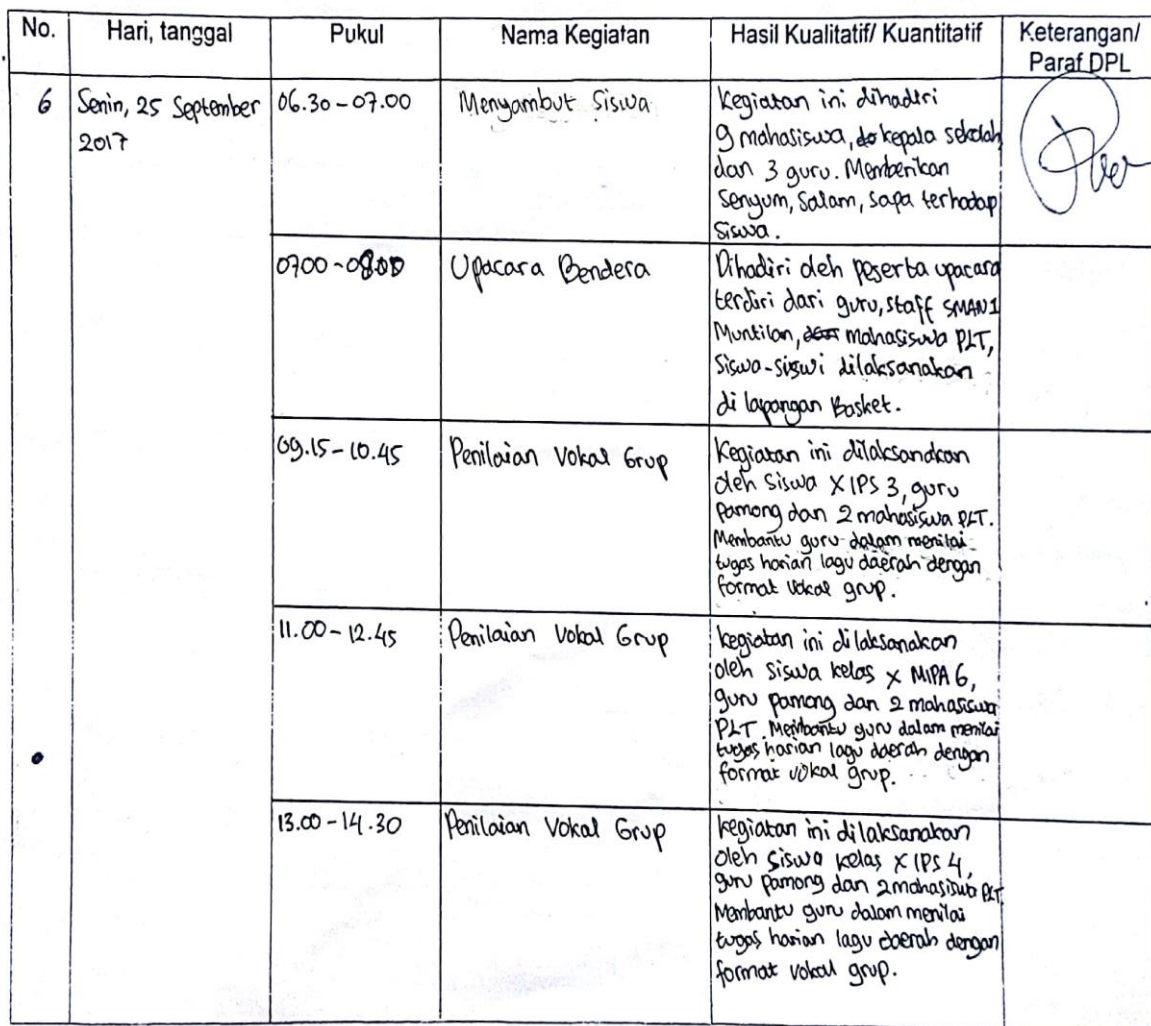 No. Hari, tanggal Pukul Nama Kegiatan Hasil Kualitatif/ Kuantitatif Keterangan/
Paraf DPL
6 Senin, 25 September 06.30 - 07.00 Menyambut Siswa Kegiatan ini dihadiri
2017 9 mahasiswa, kepala sekolah,
dan 3 guru. Memberikan
Senyum, Salam, sapa terhadap
Siswa.
07.00 - 08.00 Upacara Bendera Dihadiri oleh peserta upacara
terdiri dari guru, staff SMAN 1
Muntilan, mahasiswa PLT,
Siswa-siswi dilaksanakan
di lapangan Basket.
09.15 - 10.45 Penilaian Vokal Grup Kegiatan ini dilaksanakan
oleh Siswa X IPS 3, guru
pamong dan 2 mahasiswa PLT.
Membantu guru dalam menilai
tugas harian lagu daerah dengan
format vokal grup.
11.00 - 12.45 Penilaian Vokal Grup kegiatan ini dilaksanakan
oleh siswa kelas X MIPA 6,
guru pamong dan 2 mahasiswa
PLT. Membantu guru dalam menilai
tugas harian lagu daerah dengan
format vokal grup.
13.00 - 14.30 Penilaian Vokal Grup kegiatan ini dilaksanakan
oleh siswa kelas X IPS 4,
guru pamong dan 2 mahasiswa PLT
Membantu guru dalam menilai
tugas harian lagu daerah dengan
format vokal grup.